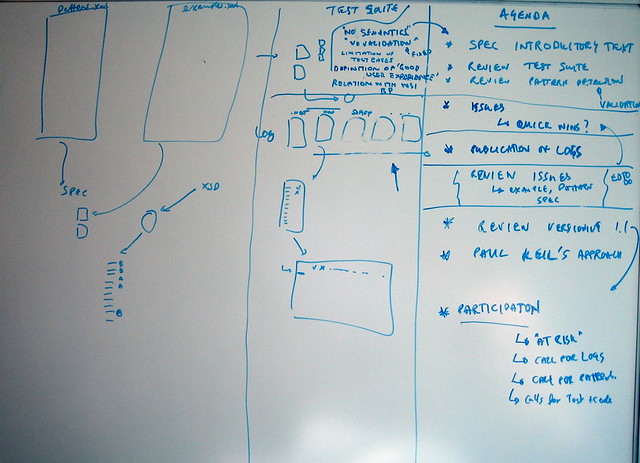 pattern.xsd
example.xsd
SPEC
XSD
TEST SUITE
"NO SEMANTICS"
"VS VALIDATION"
LIMITATION OF
TEST CASES
FIXED
DEFINITION OF 'GOOD
USER EXPERIENCE'
RELATION WITH WSI
B.P
LOG
AGENDA
* SPEC INTRODUCTORY TEXT
* REVIEW TEST SUITE
* REVIEW PATTERN DETECTION
VALIDATION
* ISSUES
↳ QUICK WINS?
* PUBLICATION OF LOGS
REVIEW ISSUES
↳ EXAMPLE, PATTERN
SPEC
* REVIEW VERSIONING 1.1
* PAUL KEIL'S APPROACH
* PARTICIPATON
↳ "AT RISK"
↳ CALL FOR LOGS
↳ CALL FOR PATTERNS.
↳ Calls for Test